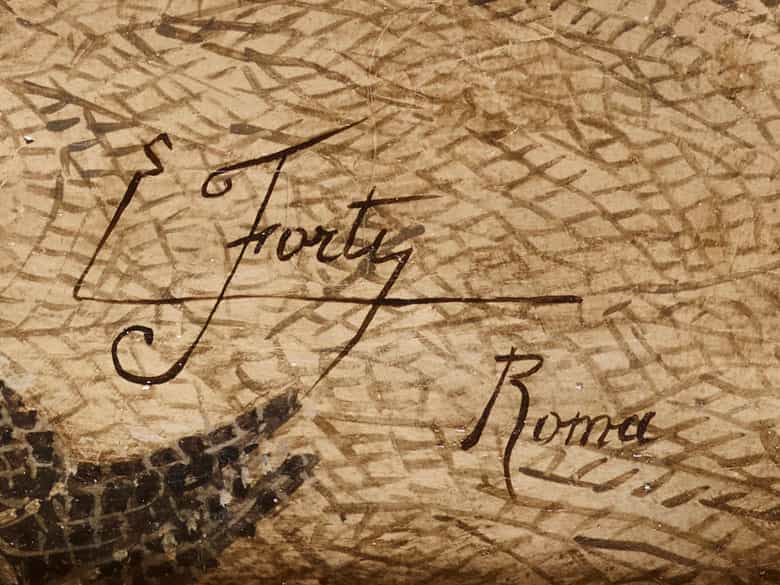 L Forty
Roma